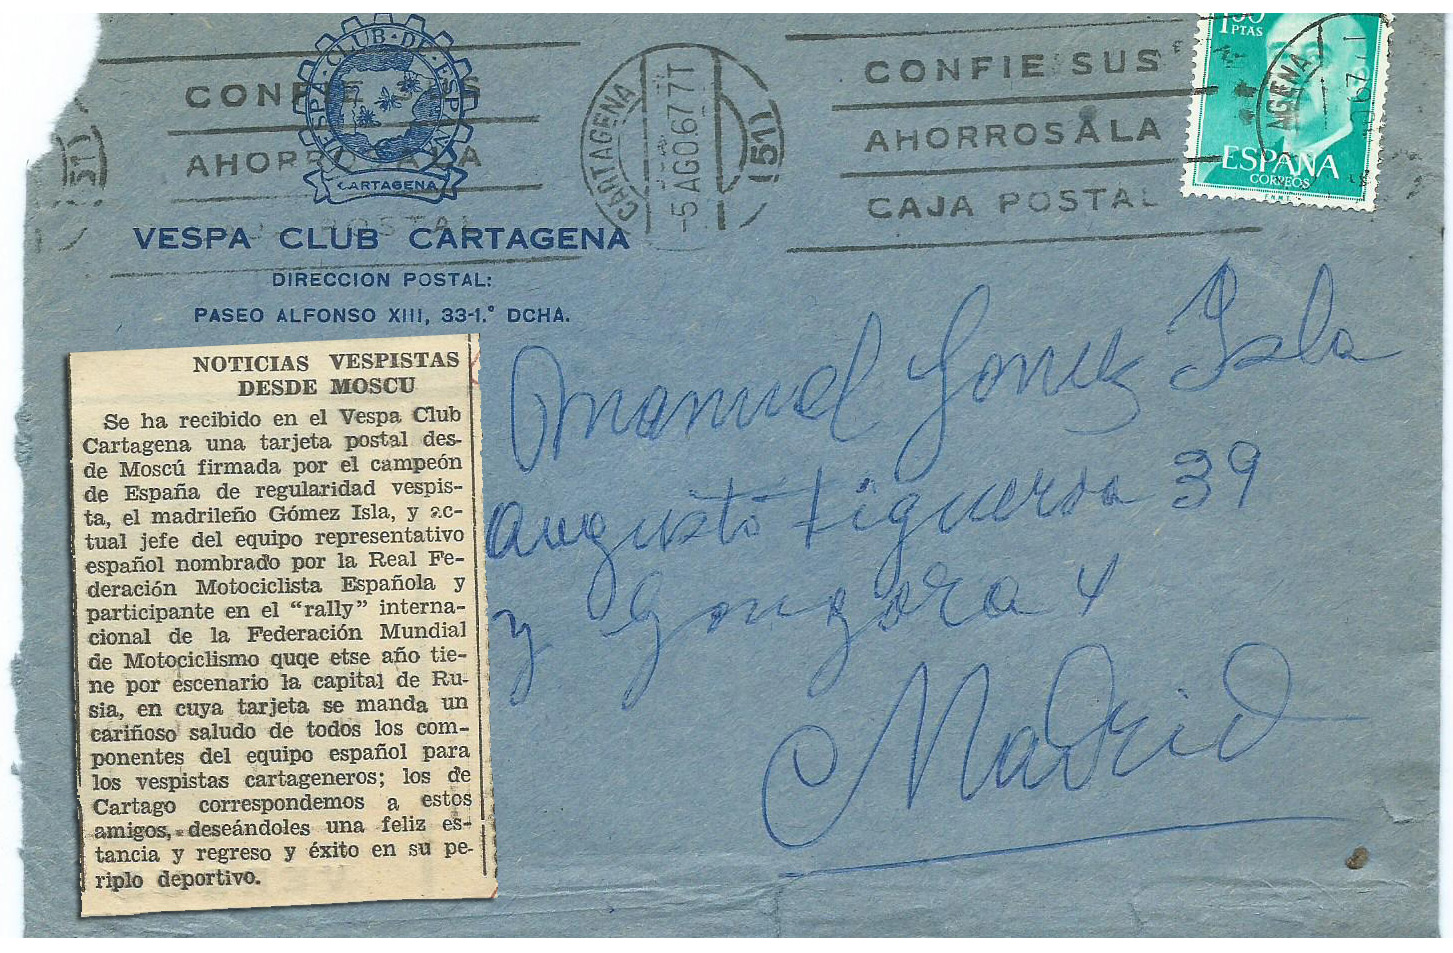 VESPA·CLUB·DE·ESPAÑA
CARTAGENA
VESPA CLUB CARTAGENA
DIRECCION POSTAL:
PASEO ALFONSO XIII, 33-1.° DCHA.
CONFIE SUS
AHORROS A LA
CAJA POSTAL
CARTAGENA
-5 AGO.67 7T
(51)
CONFIE SUS
AHORROS A LA
CAJA POSTAL
PTAS
ESPAÑA
CORREOS
F.N.M.T.
NOTICIAS VESPISTAS
DESDE MOSCU
Se ha recibido en el Vespa Club
Cartagena una tarjeta postal des-
de Moscú firmada por el campeón
de España de regularidad vespis-
ta, el madrileño Gómez Isla, y ac-
tual jefe del equipo representativo
español nombrado por la Real Fe-
deración Motociclista Española y
participante en el "rally" interna-
cional de la Federación Mundial
de Motociclismo quqe etse año tie-
ne por escenario la capital de Ru-
sia, en cuya tarjeta se manda un
cariñoso saludo de todos los com-
ponentes del equipo español para
los vespistas cartageneros; los de
Cartago correspondemos a estos
amigos, deseándoles una feliz es-
tancia y regreso y éxito en su pe-
riplo deportivo.
Manuel Gomez Isla
Augusto Figueroa 39
y Gongora 4
Madrid